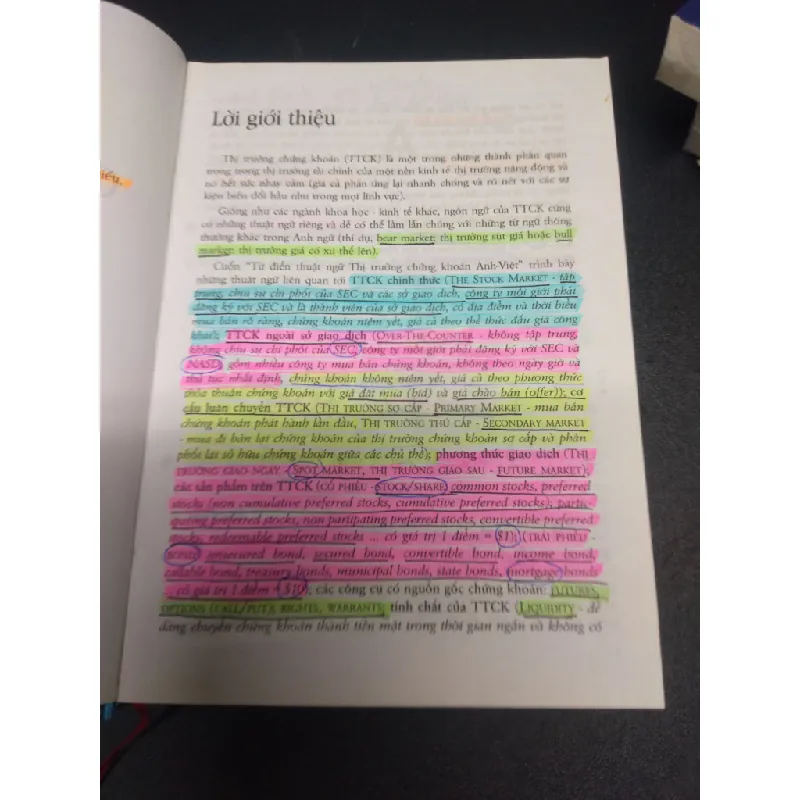 iếu.
Lời giới thiệu
Thị trường chứng khoán (TTCK) là một trong những thành phần quan
trọng trong thị trường tài chính của một nền kinh tế thị trường năng động và
nó hết sức nhạy cảm (giá cả phản ứng lại nhanh chóng và rõ nét với các sự
kiện biến đổi hầu như trong mọi lĩnh vực).
Giống như các ngành khoa học - kinh tế khác, ngôn ngữ của TTCK cũng
có những thuật ngữ riêng và dễ có thể lầm lẫn chúng với những từ ngữ thông
thường khác trong Anh ngữ (thí dụ, bear market: thị trường sụt giá hoặc bull
market: thị trường giá có xu thế lên).
Cuốn "Từ điển thuật ngữ Thị trường chứng khoán Anh-Việt" trình bày
những thuật ngữ liên quan tới TTCK chính thức (THE STOCK MARKET - tập
trung, chịu sự chi phối của SEC và các sở giao dịch, công ty môi giới phải
đăng ký với SEC và là thành viên của sở giao dịch, có địa điểm và thời biểu
mua bán rõ ràng, chứng khoán niêm yết, giá cả theo thể thức đấu giá công
khai); TTCK ngoài sở giao dịch (OVER-THE-COUNTER - không tập trung,
không chịu sự chi phối của SEC, công ty môi giới phải đăng ký với SEC và
NASD, gồm nhiều công ty mua bán chứng khoán, không theo ngày giờ và
thủ tục nhất định, chứng khoán không niêm yết, giá cả theo phương thức
thỏa thuận chứng khoán với giá đặt mua (bid) và giá chào bán (offer)); cơ
cấu luân chuyển TTCK (THỊ TRƯỜNG SƠ CẤP - PRIMARY MARKET - mua bán
chứng khoán phát hành lần đầu, THỊ TRƯỜNG THỨ CẤP - SECONDARY MARKET
- mua đi bán lại chứng khoán của thị trường chứng khoán sơ cấp và phân
phối lại sở hữu chứng khoán giữa các chủ thể); phương thức giao dịch (THỊ
TRƯỜNG GIAO NGAY - SPOT MARKET, THỊ TRƯỜNG GIAO SAU - FUTURE MARKET);
các sản phẩm trên TTCK (CỔ PHIẾU - STOCK/SHARE: common stocks, preferred
stocks (non cumulative preferred stocks, cumulative preferred stocks), partici-
pating preferred stocks, non partipating preferred stocks, convertible preferred
stocks, redeemable preferred stocks ... có giá trị 1 điểm = $1); (TRÁI PHIẾU -
BOND: unsecured bond, secured bond, convertible bond, income bond,
callable bond, treasury bonds, municipal bonds, state bonds, mortgage bonds
... có giá trị 1 điểm = $10); các công cụ có nguồn gốc chứng khoán: FUTURES,
OPTIONS (CALL/PUT), RIGHTS, WARRANTS; tính chất của TTCK (LIQUIDITY - dễ
dàng chuyển chứng khoán thành tiền mặt trong thời gian ngắn và không có